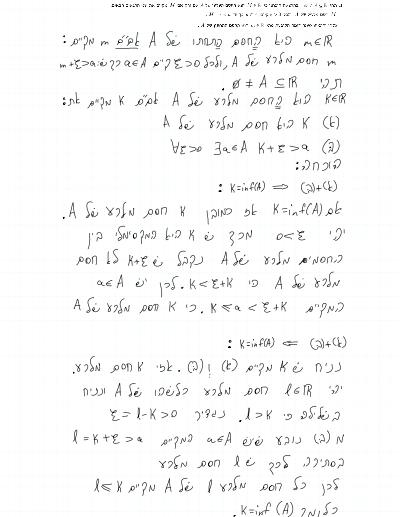 m∈ℝ הוא החסם התחתון של A אם״ם m מקיים:
m חסם מלרע של A, ולכל ε>0 קיים a∈A כך ש m+ε>a
תהי ∅≠A⊆ℝ.
K∈ℝ הוא החסם מלרע של A אם״ם K מקיים את:
(א) K הוא חסם מלרע של A
(ב) ∀ε>0 ∃a∈A K+ε>a
הוכחה:
K=inf(A) ⟹ (א)+(ב) :
אם K=inf(A) אז כמובן K חסם מלרע של A.
יהי ε>0 מכך ש K הוא המקסימלי בין
החסמים מלרע של A נקבל ש K+ε לא חסם
מלרע של A כי K<K+ε. לכן יש a∈A
המקיים K≤a<K+ε. כי K חסם מלרע של A
K=inf(A) ⟸ (א)+(ב) :
נניח ש K מקיים (א) ו(ב). אזי K חסם מלרע.
יהי l∈ℝ חסם מלרע כלשהו של A ונניח
בשלילה כי l>K. נגדיר ε=l-K>0
מ(ב) נובע שיש a∈A המקיים l=K+ε>a
בסתירה לכך ש l חסם מלרע
לכן כל חסם מלרע l של A מקיים l≤K
כלומר K=inf(A).